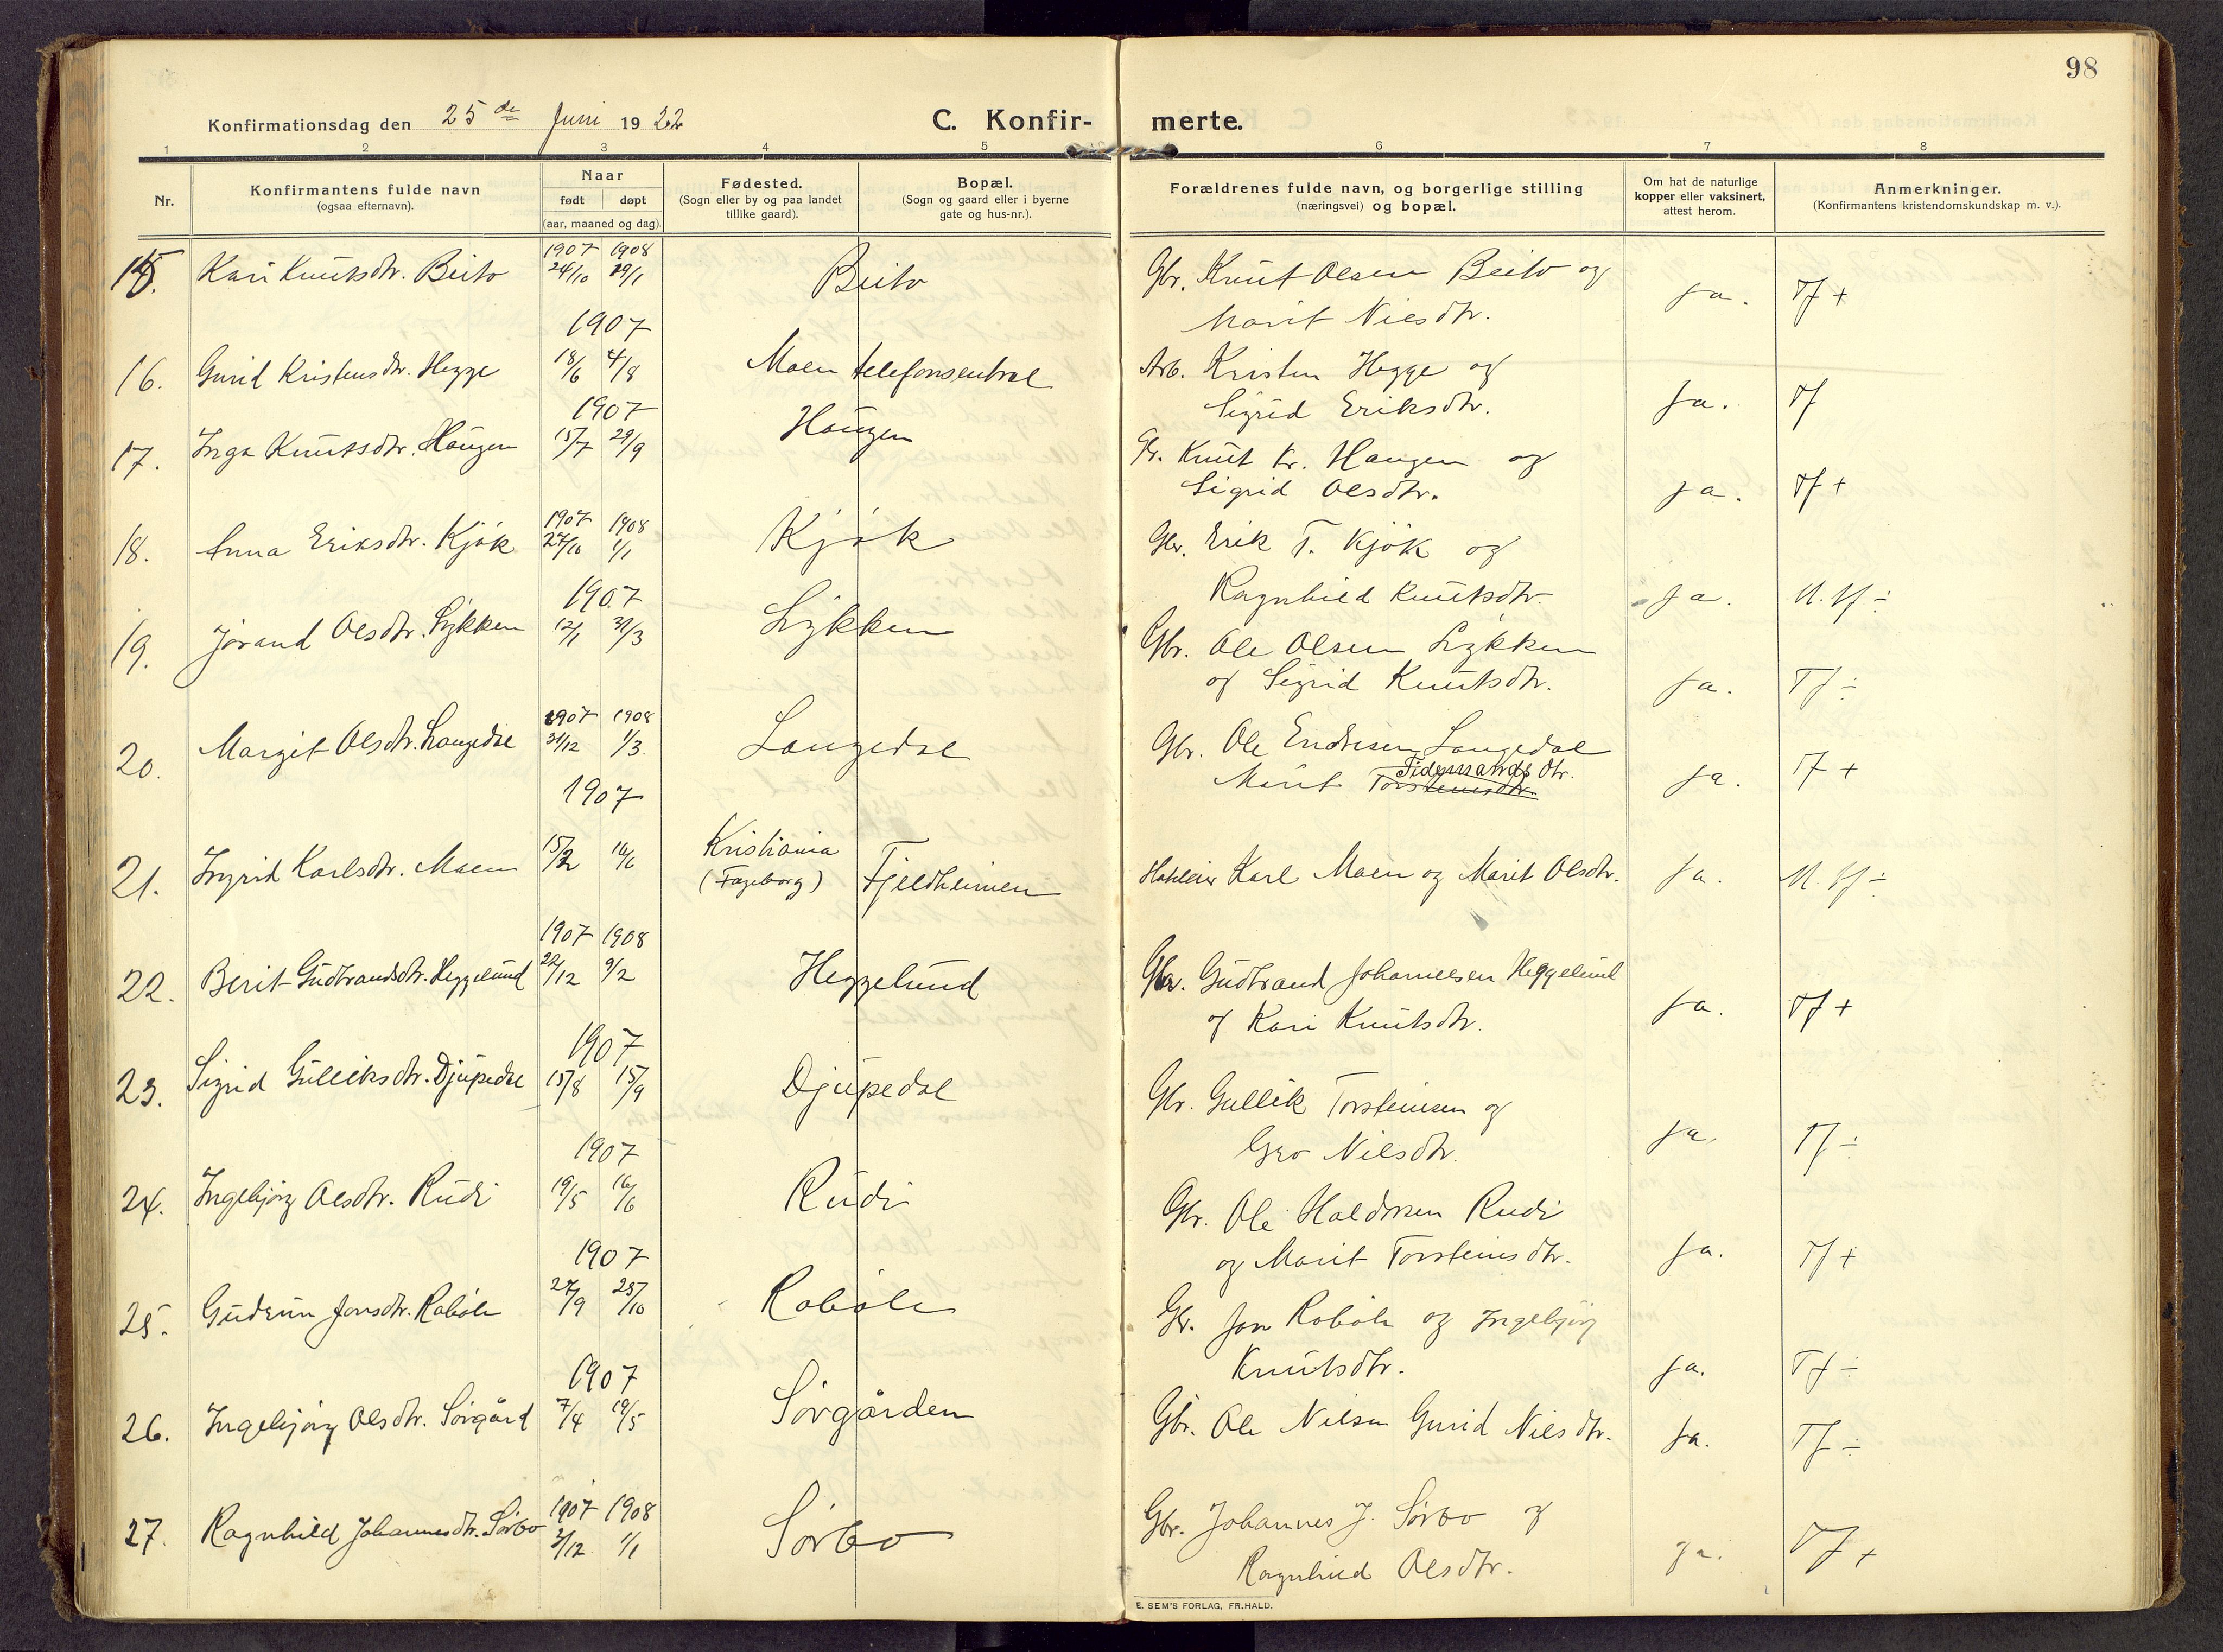 98
Konfirmationsdag den 25 de Juni 1922
C. Konfir- merte.
1 2 3 4 5 6 7 8
Nr.
Konfirmantens fulde navn
(ogsaa efternavn).
Naar
født døpt
(aar, maaned og dag).
Fødested.
(Sogn eller by og paa landet
tillike gaard).
Bopæl.
(Sogn og gaard eller i byerne
gate og hus-nr.).
Forældrenes fulde navn, og borgerlige stilling
(næringsvei) og bopæl.
Om hat de naturlige
kopper eller vaksinert,
attest herom.
Anmerkninger.
(Konfirmantens kristendomskundskap m. v.).
1907 1908
15. Kari Knutsdtr. Beito 24/10 29/1 Beito Gbr. Knut Olsen Beito og
Marit Nilsdtr. ja. Tf +
1907
16. Gunid Kristensdtr. Hegge 18/6 4/8 Moen telefonsentral Arb. Kristen Hegge og
Sigrid Eriksdtr. ja. Tf
1907
17. Inga Knutsdtr. Haugen 15/7 29/9 Haugen Gbr. Knut Kr. Haugen og
Sigrid Olsdtr. ja. Tf +
1907 1908
18. Anna Eriksdtr. Kjök 27/10 1/1 Kjök Gbr. Erik T. Kjök og
Ragnhild Knutsdtr. ja. M. tf ÷
1907
19. Jörand Olsdtr. Lykken 12/1 31/3 Lykken Gbr. Ole Olsen Lykken
og Sigrid Knutsdtr. ja. Tf ÷
1907 1908
20. Margit Olsdtr. Langedal 31/12 1/3. Langedal Gbr. Ole Endresen Langedal
Tidemands dtr.
Marit Torsteinsdtr. ja. Tf +
1907
21. Ingrid Karlsdtr. Moen 15/2 16/6 Kristiania
(Fageborg) Fjeldheimen Hoteleier Karl Moen og Marit Olsdtr. ja. M. tf ÷
1907 1908
22. Berit Gudbrandsdtr. Heggelund 22/12 9/2 Heggelund Gbr. Gudbrand Johannessen Heggelund
og Kari Knutsdtr. ja. Tf +
1907
23. Sigrid Gulleiksdtr. Djupedal 15/8 15/9 Djupedal Gbr. Gullik Torsteinsen og
Gro Nilsdtr. ja. Tf ÷
1907
24. Ingebjørg Olsdtr. Rudi 19/5 16/6 Rudi Gbr. Ole Haldorsen Rudi
og Marit Torsteinsdtr. ja. Tf +
1907
25. Gudrun Jonsdtr. Raböle 27/9 25/10 Raböle Gbr. Jon Raböle og Ingebjörg
Knutsdtr. ja. Tf ÷
1907
26. Ingebjörg Olsdtr. Sörgård 7/4 19/5 Sörgården Gbr. Ole Nilsen Gunid Nilsdtr. ja. Tf ÷
1907 1908
27. Ragnhild Johannesdtr. Sörbo 2/12 1/1 Sörbo Gbr. Johannes J. Sörbo og
Ragnhild Olsdtr. ja. Tf +
E. SEM'S FORLAG, FR.HALD.